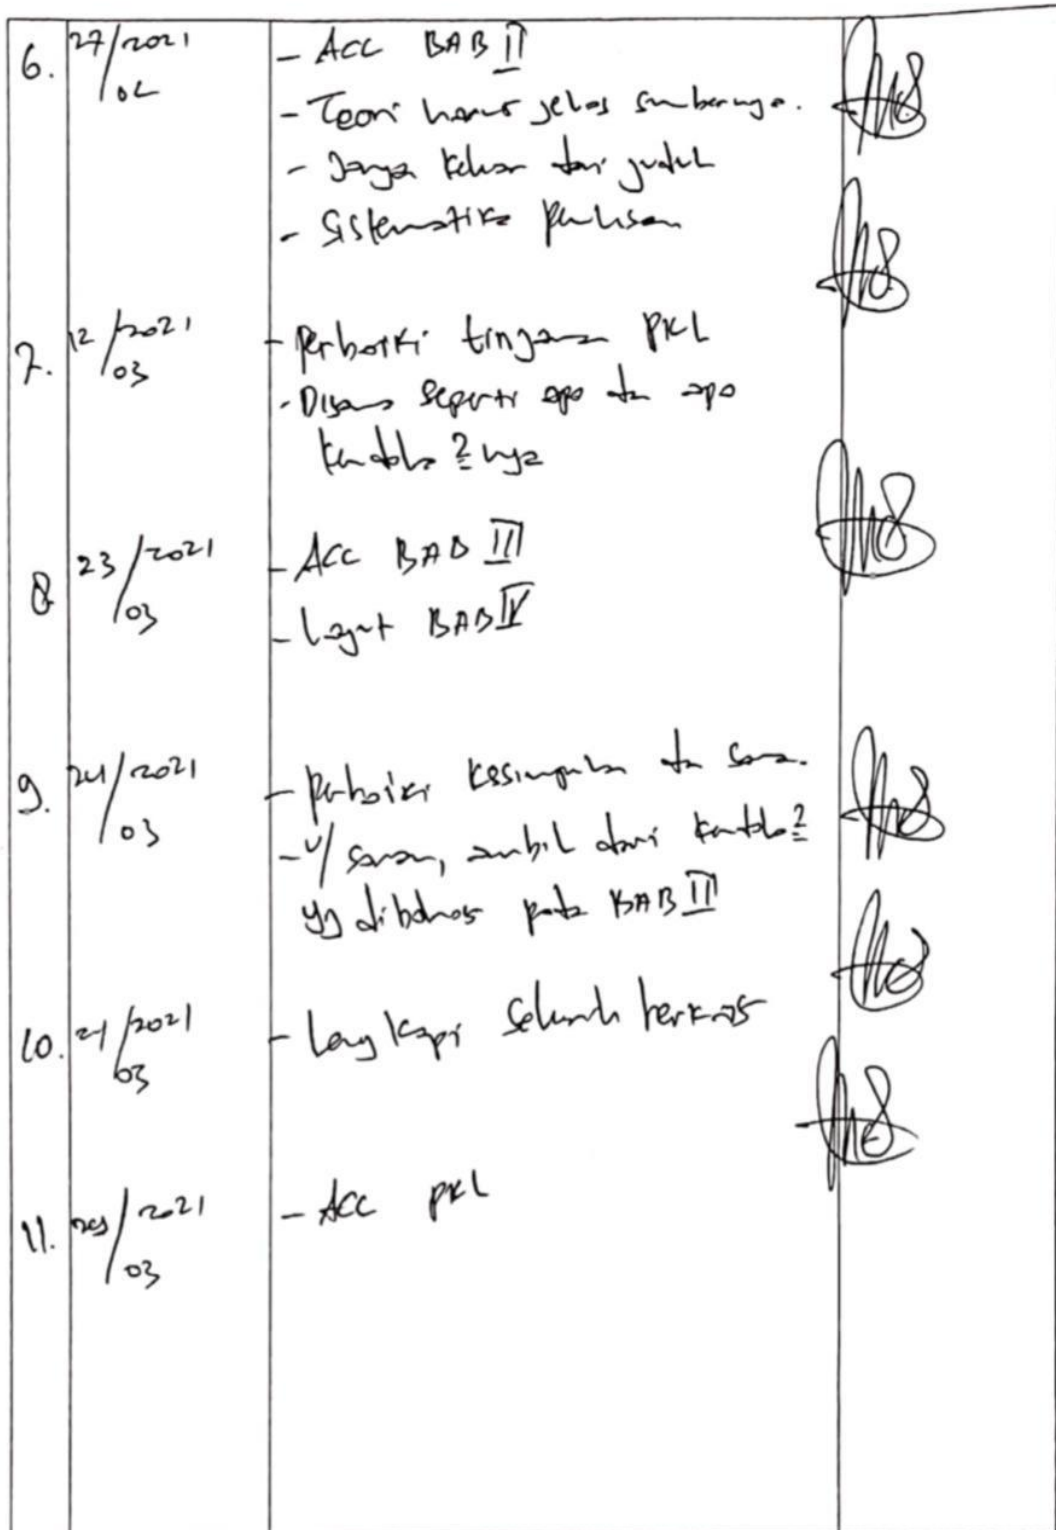 6. 27/2021
02
- Acc BAB II
- Teori harus jelas sumbernya.
- Jangan keluar dari judul
- Sistematika penulisan
7. 12/2021
03
- Perbaiki PKL
- seperti apa dan apa
kendala2nya
8 23/2021
03
- Acc BAB III
- Lanjut BAB IV
9. 24/2021
03
- Perbaiki kesimpulan dan saran.
- U/ saran, ambil dari kendala2
yg dibahas pada BAB II
10. /2021
03
- Lengkapi seluruh berkas
11. /2021
03
- Acc PKL